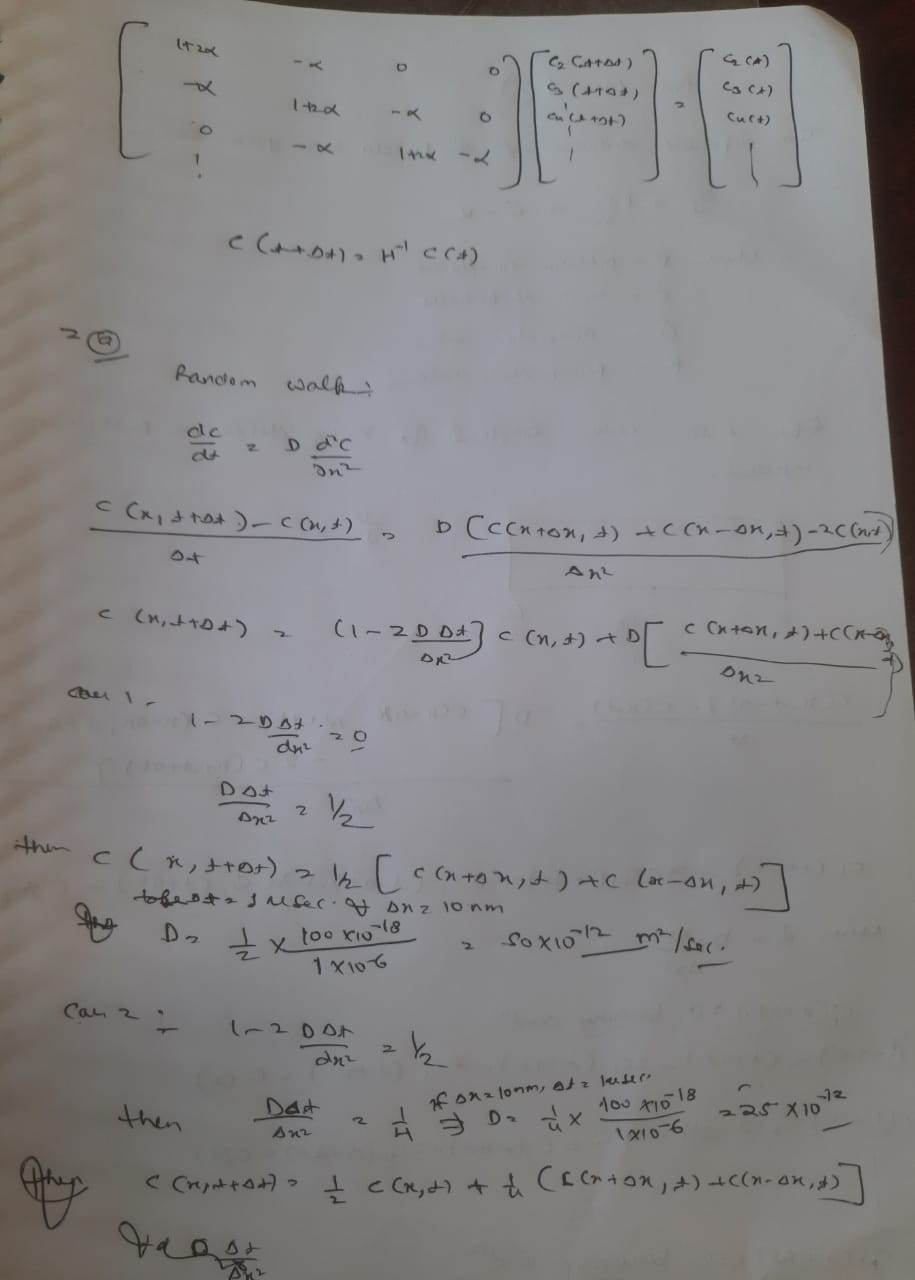 1+2α -α 0 0 C2 (t+Δt) C2 (t)
-α 1+2α -α 0 C3 (t+Δt) = C3 (t)
0 -α 1+2α -α C4 (t+Δt) C4 (t)
C (t+Δt) = H⁻¹ C(t)
2
Random walk :
dc/dt = D ∂²C/∂x²
C (x, t+Δt) - C(x,t) / Δt = D [C(x+Δx, t) + C(x-Δx,t) - 2C(x,t)] / Δx²
C (x, t+Δt) = (1 - 2 D Δt/Δx²] C (x,t) + D [ C (x+Δx, t) + C(x-Δx, t) / Δx² ]
Case 1 -
1 - 2 D Δt/dx² = 0
D Δt/Δx² = 1/2
then C ( x, t+Δt) = 1/2 [ C(x+Δx, t) + C (x-Δx, t) ]
Δt = 1 μsec. & Δx = 10 nm
D = 1/2 × 100 × 10⁻¹⁸ / 1 × 10⁻⁶ = 50 × 10⁻¹² m²/sec.
Case 2 :
1 - 2 D Δt/dx² = 1/2
then DΔt/Δx² = 1/4 if Δx = 10nm, Δt = 1μsec. ⇒ D = 1/4 × 100 × 10⁻¹⁸ / 1×10⁻⁶ = 25 × 10⁻¹²
then C (x, t+Δt) = 1/2 C(x,t) + 1/4 ( C(x+Δx, t) + C(x-Δx, t) ]
Δt/Δx²